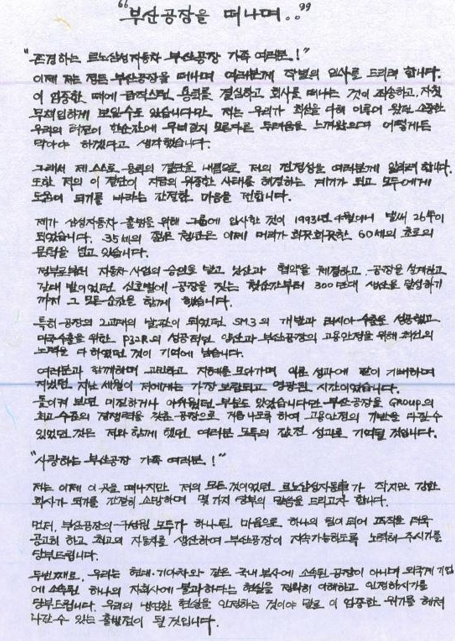 "부산공장을 떠나며.."
"존경하는 르노삼성자동차 부산공장 가족 여러분!"
이제 저는 정든 부산공장을 떠나며 여러분께 작별의 인사를 드리려 합니다.
이 엄중한 때에 갑작스런 용퇴를 결심하고 회사를 떠나는 것이 죄송하고, 자칫
무책임하게 보일수도 있습니다만, 저는 우리가 최선을 다해 이루어 왔던 소중한
우리의 터전이 한순간에 무너질지 모른다는 두려움을 느껴왔으며 어떻게든
막아야 하겠다고 생각했습니다.
그래서 제 스스로 용퇴의 결단을 내림으로 저의 진정성을 여러분께 알리려 합니다.
또한 저의 이 결단이 지금의 위중한 사태를 해결하는 계기가 되고 모두에게
도움이 되기를 바라는 간절한 마음을 전합니다.
제가 삼성자동차 출범을 위해 그룹에 입사한 것이 1993년 4월이니 벌써 26年이
되었습니다. 35세의 젊은 청년은 이제 머리가 희끗희끗한 60세의 초로의
문턱을 넘고 있습니다.
정부로부터 자동차 사업의 승인을 받고 닛산과 협약을 체결하고, 공장을 설계하고
갈대 밭이었던 신호벌에 공장을 짓는 첫순간부터 300만대 생산을 달성하기
까지 그 모든 순간을 함께 했습니다.
특히 공장의 2교대의 발판이 되었던 SM3의 개발과 러시아 수출을 성공했고
미국수출을 위한 P32R의 성공적인 양산과 부산공장의 고용안정을 위해 최선의
노력을 다 하였던 것이 기억에 남습니다.
여러분과 함께하며 고민하고 지혜를 모아가며 이룬 성과에 같이 기뻐하며
지냈던 지난 세월이 저에게는 가장 보람되고 영광된 시간이었습니다.
돌이켜 보면 미진하거나 아쉬웠던 부분도 있었습니다만 부산공장을 Group의
최고 수준의 경쟁력을 갖춘 공장으로 거듭나도록 하여 고용안정의 기반을 다질수
있었던 것은 저와 함께 했던 여러분 모두의 값진 성과로 기억될 것입니다.
"사랑하는 부산공장 가족 여러분!"
저는 이제 이 곳을 떠나지만 저의 모든 것이었던 르노삼성자동車가 작지만 강한
회사가 되기를 간절히 소망하며 몇 가지 당부의 말씀을 드리고자 합니다.
먼저, 부산공장의 구성원 모두가 하나된 마음으로 하나의 팀이 되어 조직을 더욱
공고히 하고 최고의 자동차를 생산하여 부산공장이 지속가능하도록 노력해 주시기를
당부드립니다.
두번째로, 우리는 현대·기아차와 같은 국내 본사에 소속된 공장이 아니며 외국계 기업
에 소속된 하나의 자회사에 불과하다는 현실을 정확히 이해하고 인정하시기를
당부드립니다. 우리의 냉엄한 현실을 인정하는 것이야 말로 이 엄중한 위기를 헤쳐
나갈 수 있는 출발점이 될 것입니다.